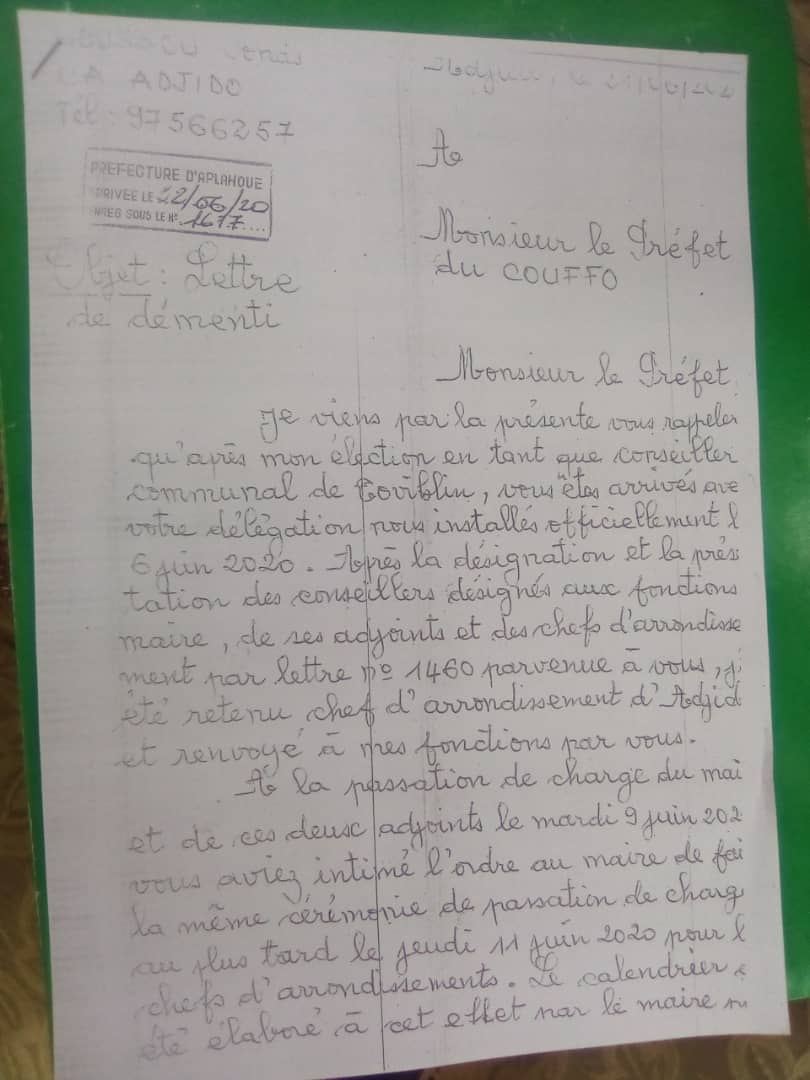 CA ADJIDO
Tél : 97566257
PREFECTURE D'APLAHOUE
RRIVEE LE 22/06/20
NREG SOUS LE N° 1677
A
Monsieur le Préfet
du COUFFO
Objet : Lettre
de démenti
Monsieur le Préfet,
Je viens par la présente vous rappeler
qu'après mon élection en tant que conseiller
communal de, vous êtes arrivés ave
votre délégation nous installés officiellement l
6 juin 2020. Après la désignation et la prés
tation des conseillers désignés aux fonctions
maire, de ses adjoints et des chefs d'arrondisse
ment par lettre n° 1460 parvenue à vous, j'
été retenu chef d'arrondissement d'Adjid
et renvoyé à mes fonctions par vous.
A la passation de charge du mai
et de ces deux adjoints le mardi 9 juin 202
vous aviez intimé l'ordre au maire de fai
la même cérémonie de passation de charg
au plus tard le jeudi 11 juin 2020 pour l
chefs d'arrondissements. Le calendrier a
été élaboré à cet effet par le maire